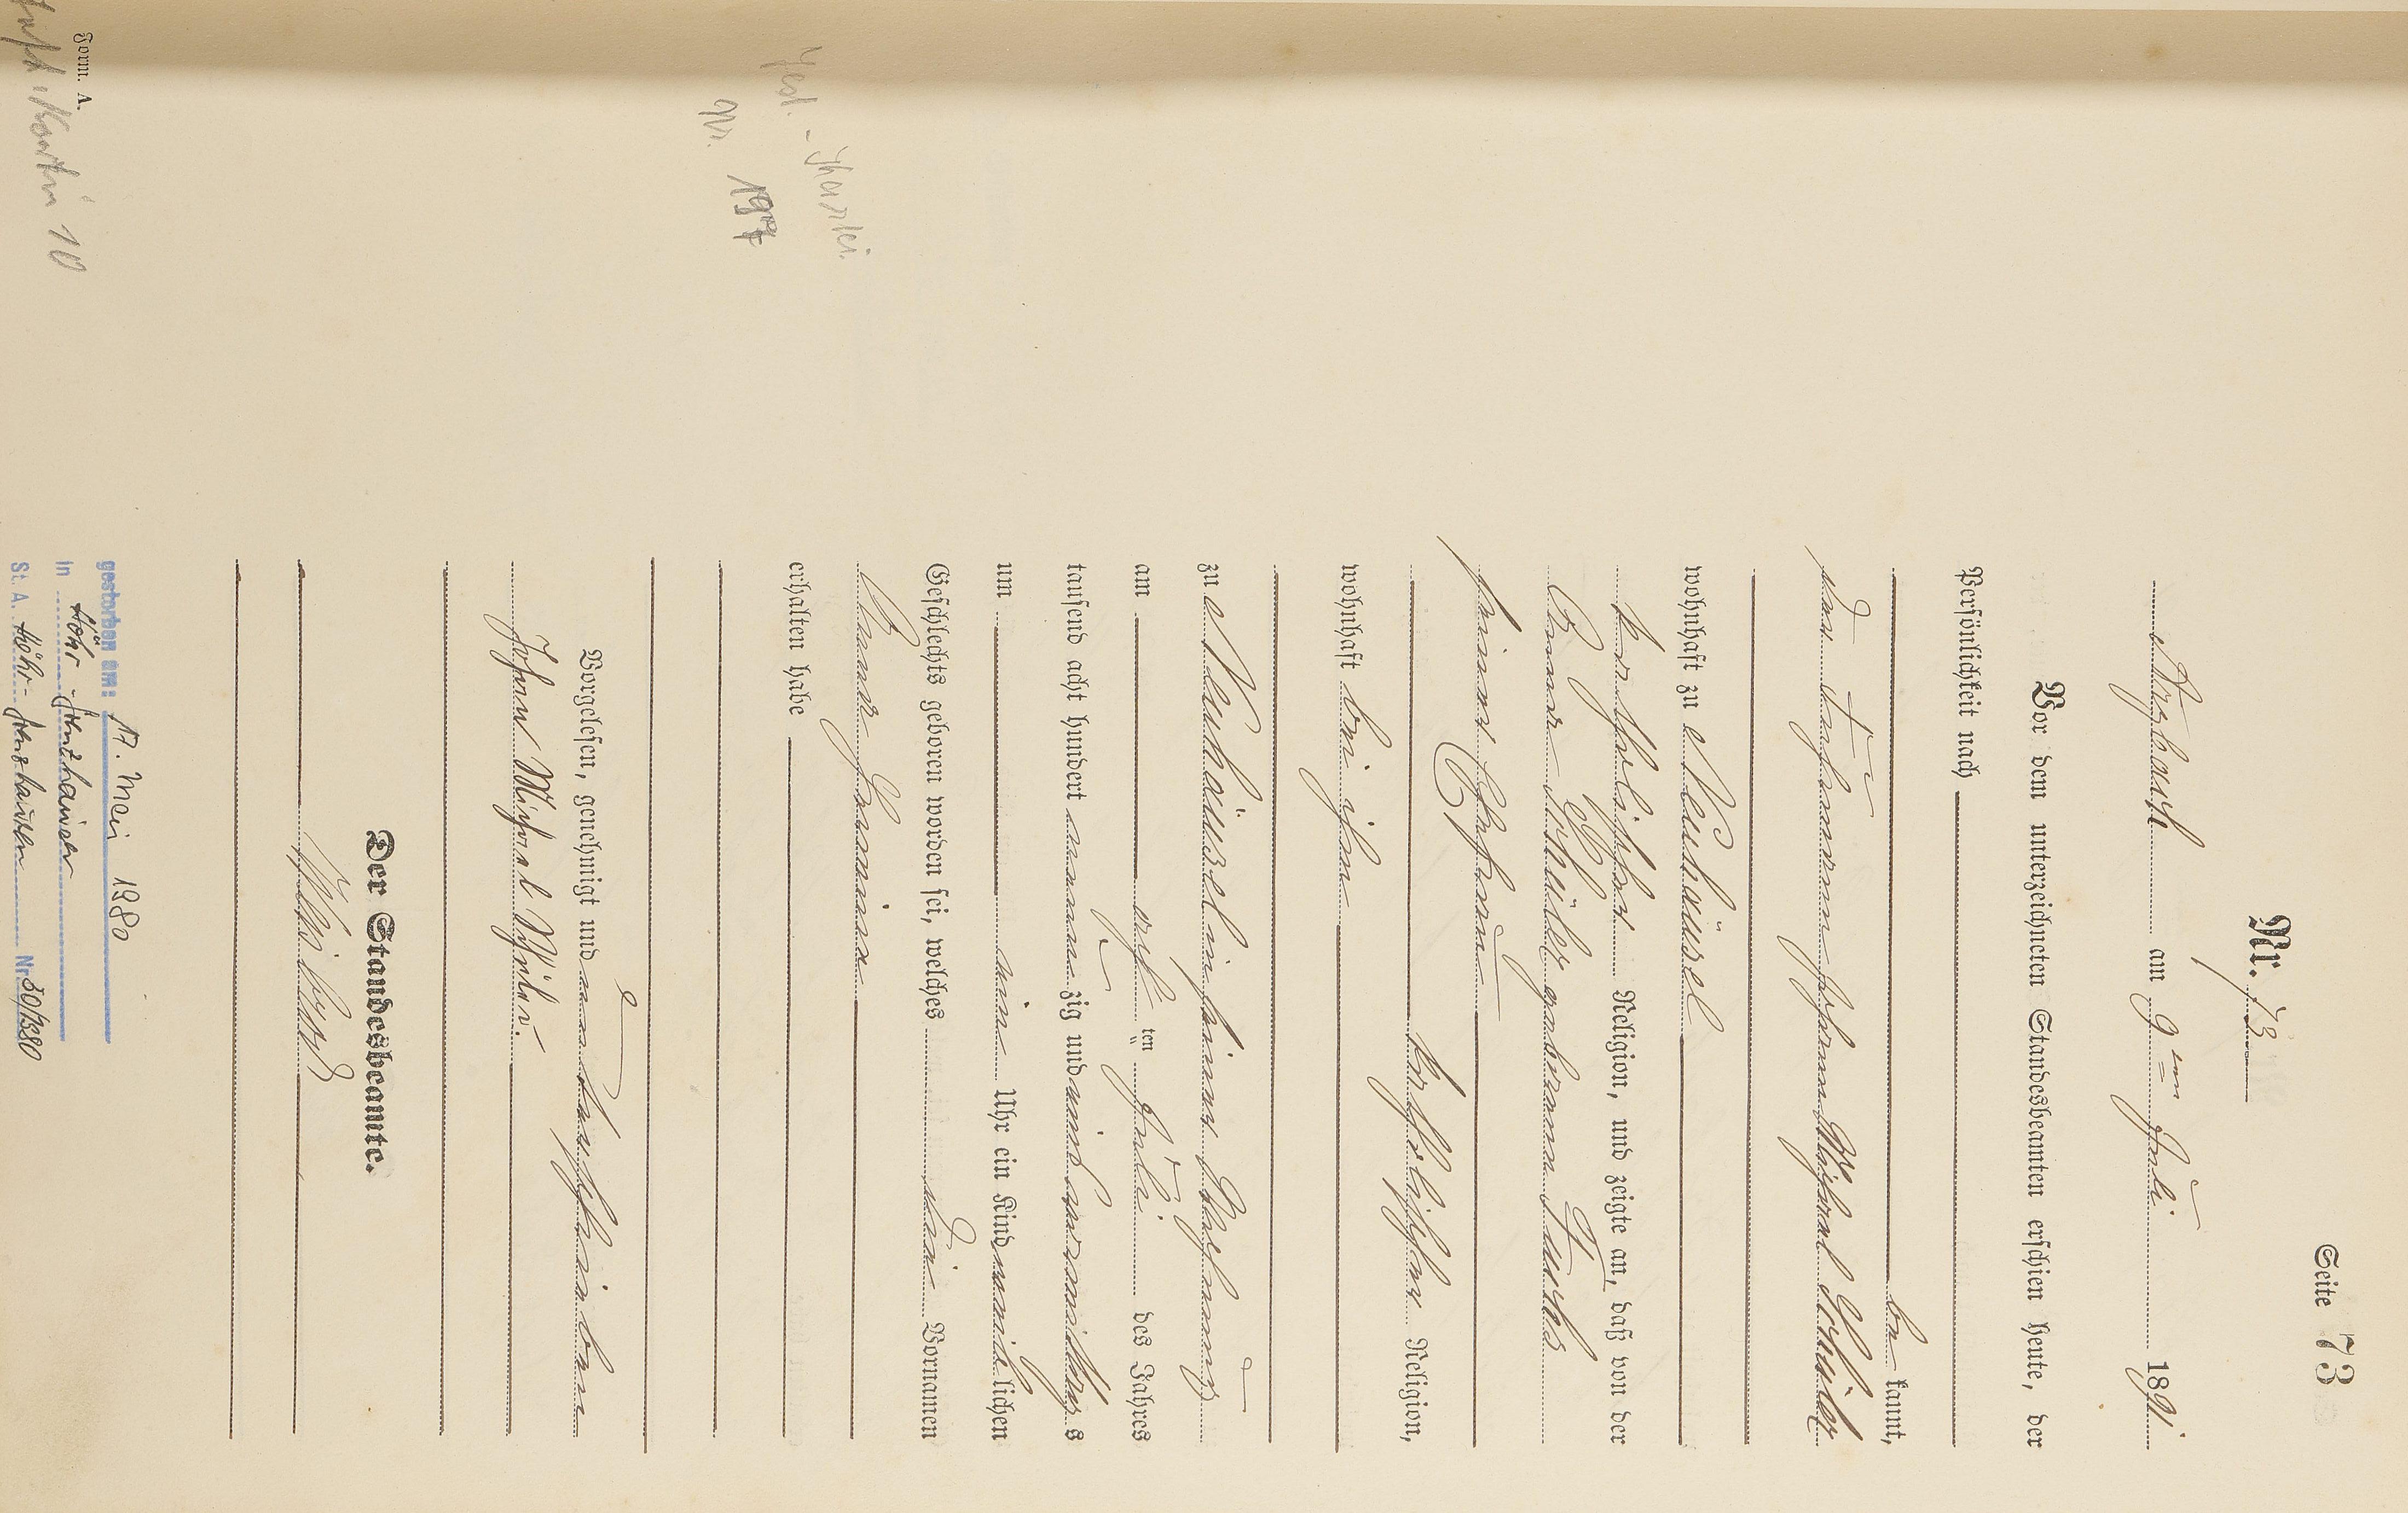 Seite 73
Nr. 73
Arzbach am 9ten Juli 1891
Vor dem unterzeichneten Standesbeamten erschien heute, der
Persönlichkeit nach
be kannt,
der Fuhrmann Johann Michael Schüler
wohnhaft zu Neuhäusel
katholischer Religion, und zeigte an, daß von der
Anna Schüler geborenen Fuchs
seiner Ehefrau
katholischer Religion,
wohnhaft bei ihm
zu Neuhäusel in seiner Wohnung
am acht ten Juli des Jahres
tausend acht hundert neun zig und eins Vormittags
um ein Uhr ein Kind weiblichen
Geschlechts geboren worden sei, welches die Vornamen
Anna Hermina
erhalten habe
Vorgelesen, genehmigt und unterschrieben
Johann Michael Schüler.
Der Standesbeamte.
gestorben am: 17. Mai 1980
in Höhr-Grenzhausen
St. A. Höhr-Grenzhausen Nr 80/1980
Form. A.